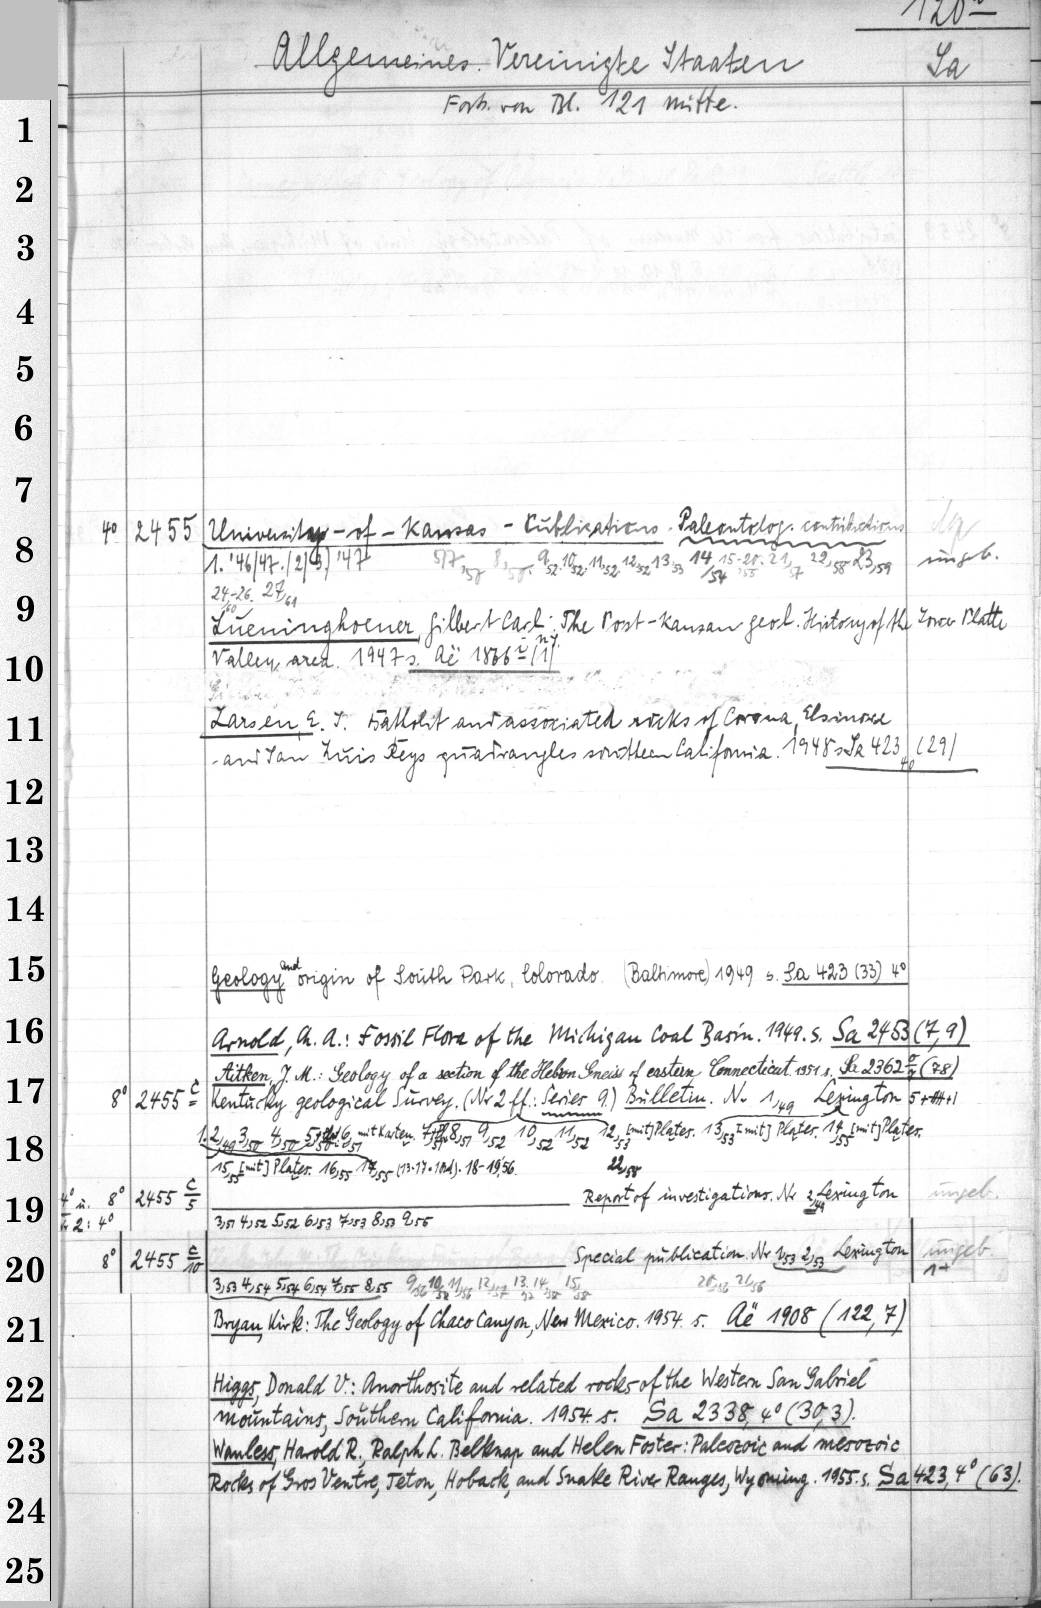 120
Allgemeines. Vereinigte Staaten Sa
Forts. von Bl. 121 mitte.
1
2
3
4
5
6
7
8
9
10
11
12
13
14
15
16
17
18
19
20
21
22
23
24
25
4° 2455 University-of-Kansas-Publications. Paleontolog. contributions
1. '46/47. (2/3) '47 14/54 15-20/55 21/57 22/58 23/59 ungeb.
24-26/60 27/61
Lueninghoener, Gilbert Carl: The Post-Kansan geol. History of the Lower Platte
Valley area. 1947 s. Aë 1866
Larsen, E. S. Batholit and associated rocks of Corona, Elsinore
and San Luis Reys quadrangles southern California. 1948 s. Sa 423 4° (29)
Geology and origin of South Park, Colorado. (Baltimore) 1949 s. Sa 423 (33) 4°
Arnold, Ch. A.: Fossil Flora of the Michigan Coal Basin. 1949. s. Sa 2453 (7, 9)
Aitken, J. M.: Geology of a section of the Hebron Gneiss of eastern Connecticut 1951 s. Sa 2362 (78)
8° 2455 c Kentucky geological Survey. (Nr 2 ff: Series 9.) Bulletin. Nr 1,49 Lexington
2,49 3,50 4,50 mit Karten. 8,51 9,52 10,52 11,52 12,53 [mit] Plates. 13,53 [mit] Plates. 14,55 [mit] Plates.
15,55 [mit] Plates. 16,55 17,55 18-19,56. 22,58
4° u. 8° 2455 c/5 Report of investigations. Nr 2,49 Lexington ungeb.
2: 4° 3,51 4,52 5,52 6,53 7,53 8,53 9,55
8° 2455 c/10 Special publication. Nr 1,53 2,53 Lexington ungeb.
3,53 4,54 5,54 6,54 7,55 8,55
Bryan, Kirk: The Geology of Chaco Canyon, New Mexico. 1954. s. Aë 1908 (122, 7)
Higgs, Donald V.: Anorthosite and related rocks of the Western San Gabriel
mountains, Southern California. 1954. s. Sa 2338, 4° (30,3).
Wanless, Harold R., Ralph L. Belknap and Helen Foster: Paleozoic and mesozoic
Rocks of Gros Ventre, Teton, Hoback, and Snake River Ranges, Wyoming. 1955. s. Sa 423, 4° (63).